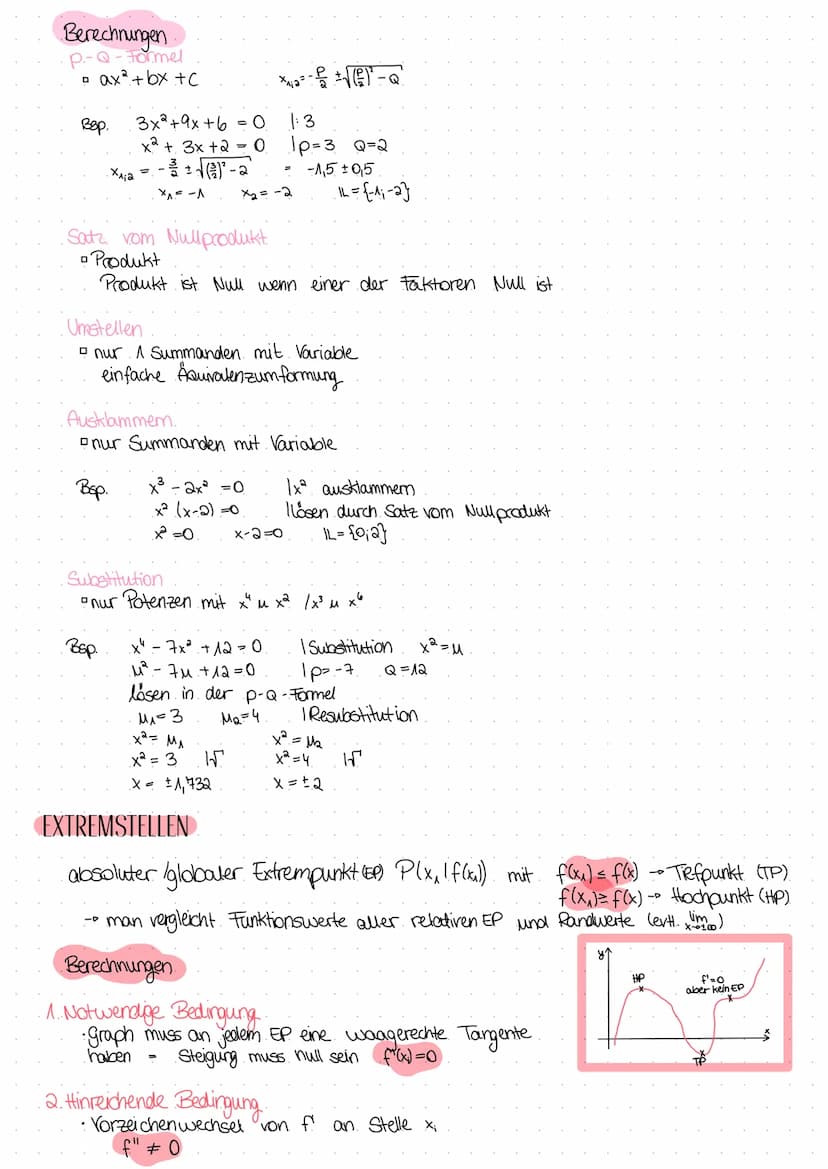 Berechnungen
P-Q-Formel
▫ ax² + bx + c x₁;₂ = -P/2 ± √((P/2)² - Q)
Bsp. 3x² + 9x + 6 = 0 |:3
x² + 3x + 2 = 0 | p=3 Q=2
x₁;₂ = -3/2 ± √((3/2)² - 2) = -1,5 ± 0,5
x₁ = -1 x₂ = -2 𝕃 = {-1; -2}
Satz vom Nullprodukt
▫ Produkt
Produkt ist Null wenn einer der Faktoren Null ist
Umstellen
▫ nur 1 Summanden mit Variable
einfache Äquivalenzumformung
Ausklammern
▫ nur Summanden mit Variable
Bsp. x³ - 2x² = 0 | x² ausklammern
x² (x-2) = 0 | lösen durch Satz vom Nullprodukt
x² = 0 x-2=0 𝕃 = {0;2}
Substitution
▫ nur Potenzen mit x⁴ u x² / x³ u x⁶
Bsp. x⁴ - 7x² + 12 = 0 | Substitution x² = u
u² - 7u + 12 = 0 | p = -7 Q = 12
lösen in der p-Q-Formel
u₁ = 3 u₂ = 4 | Resubstitution
x² = u₁ x² = u₂
x² = 3 |√ x² = 4 |√
x = ±1,732 x = ±2
EXTREMSTELLEN
absoluter/globaler Extrempunkt (EP) P(x₁|f(x₁)) mit f(x₁) ≤ f(x) → Tiefpunkt (TP)
f(x₁) ≥ f(x) → Hochpunkt (HP)
→ man vergleicht Funktionswerte aller relativen EP und Randwerte (evtl. lim x→±∞)
Berechnungen
y
HP
f'=0
aber kein EP
x
TP
1. Notwendige Bedingung
· Graph muss an jedem EP eine waagerechte Tangente
haben = Steigung muss null sein f'(x) = 0
2. Hinreichende Bedingung
· Vorzeichenwechsel von f' an Stelle xᵢ
f'' ≠ 0